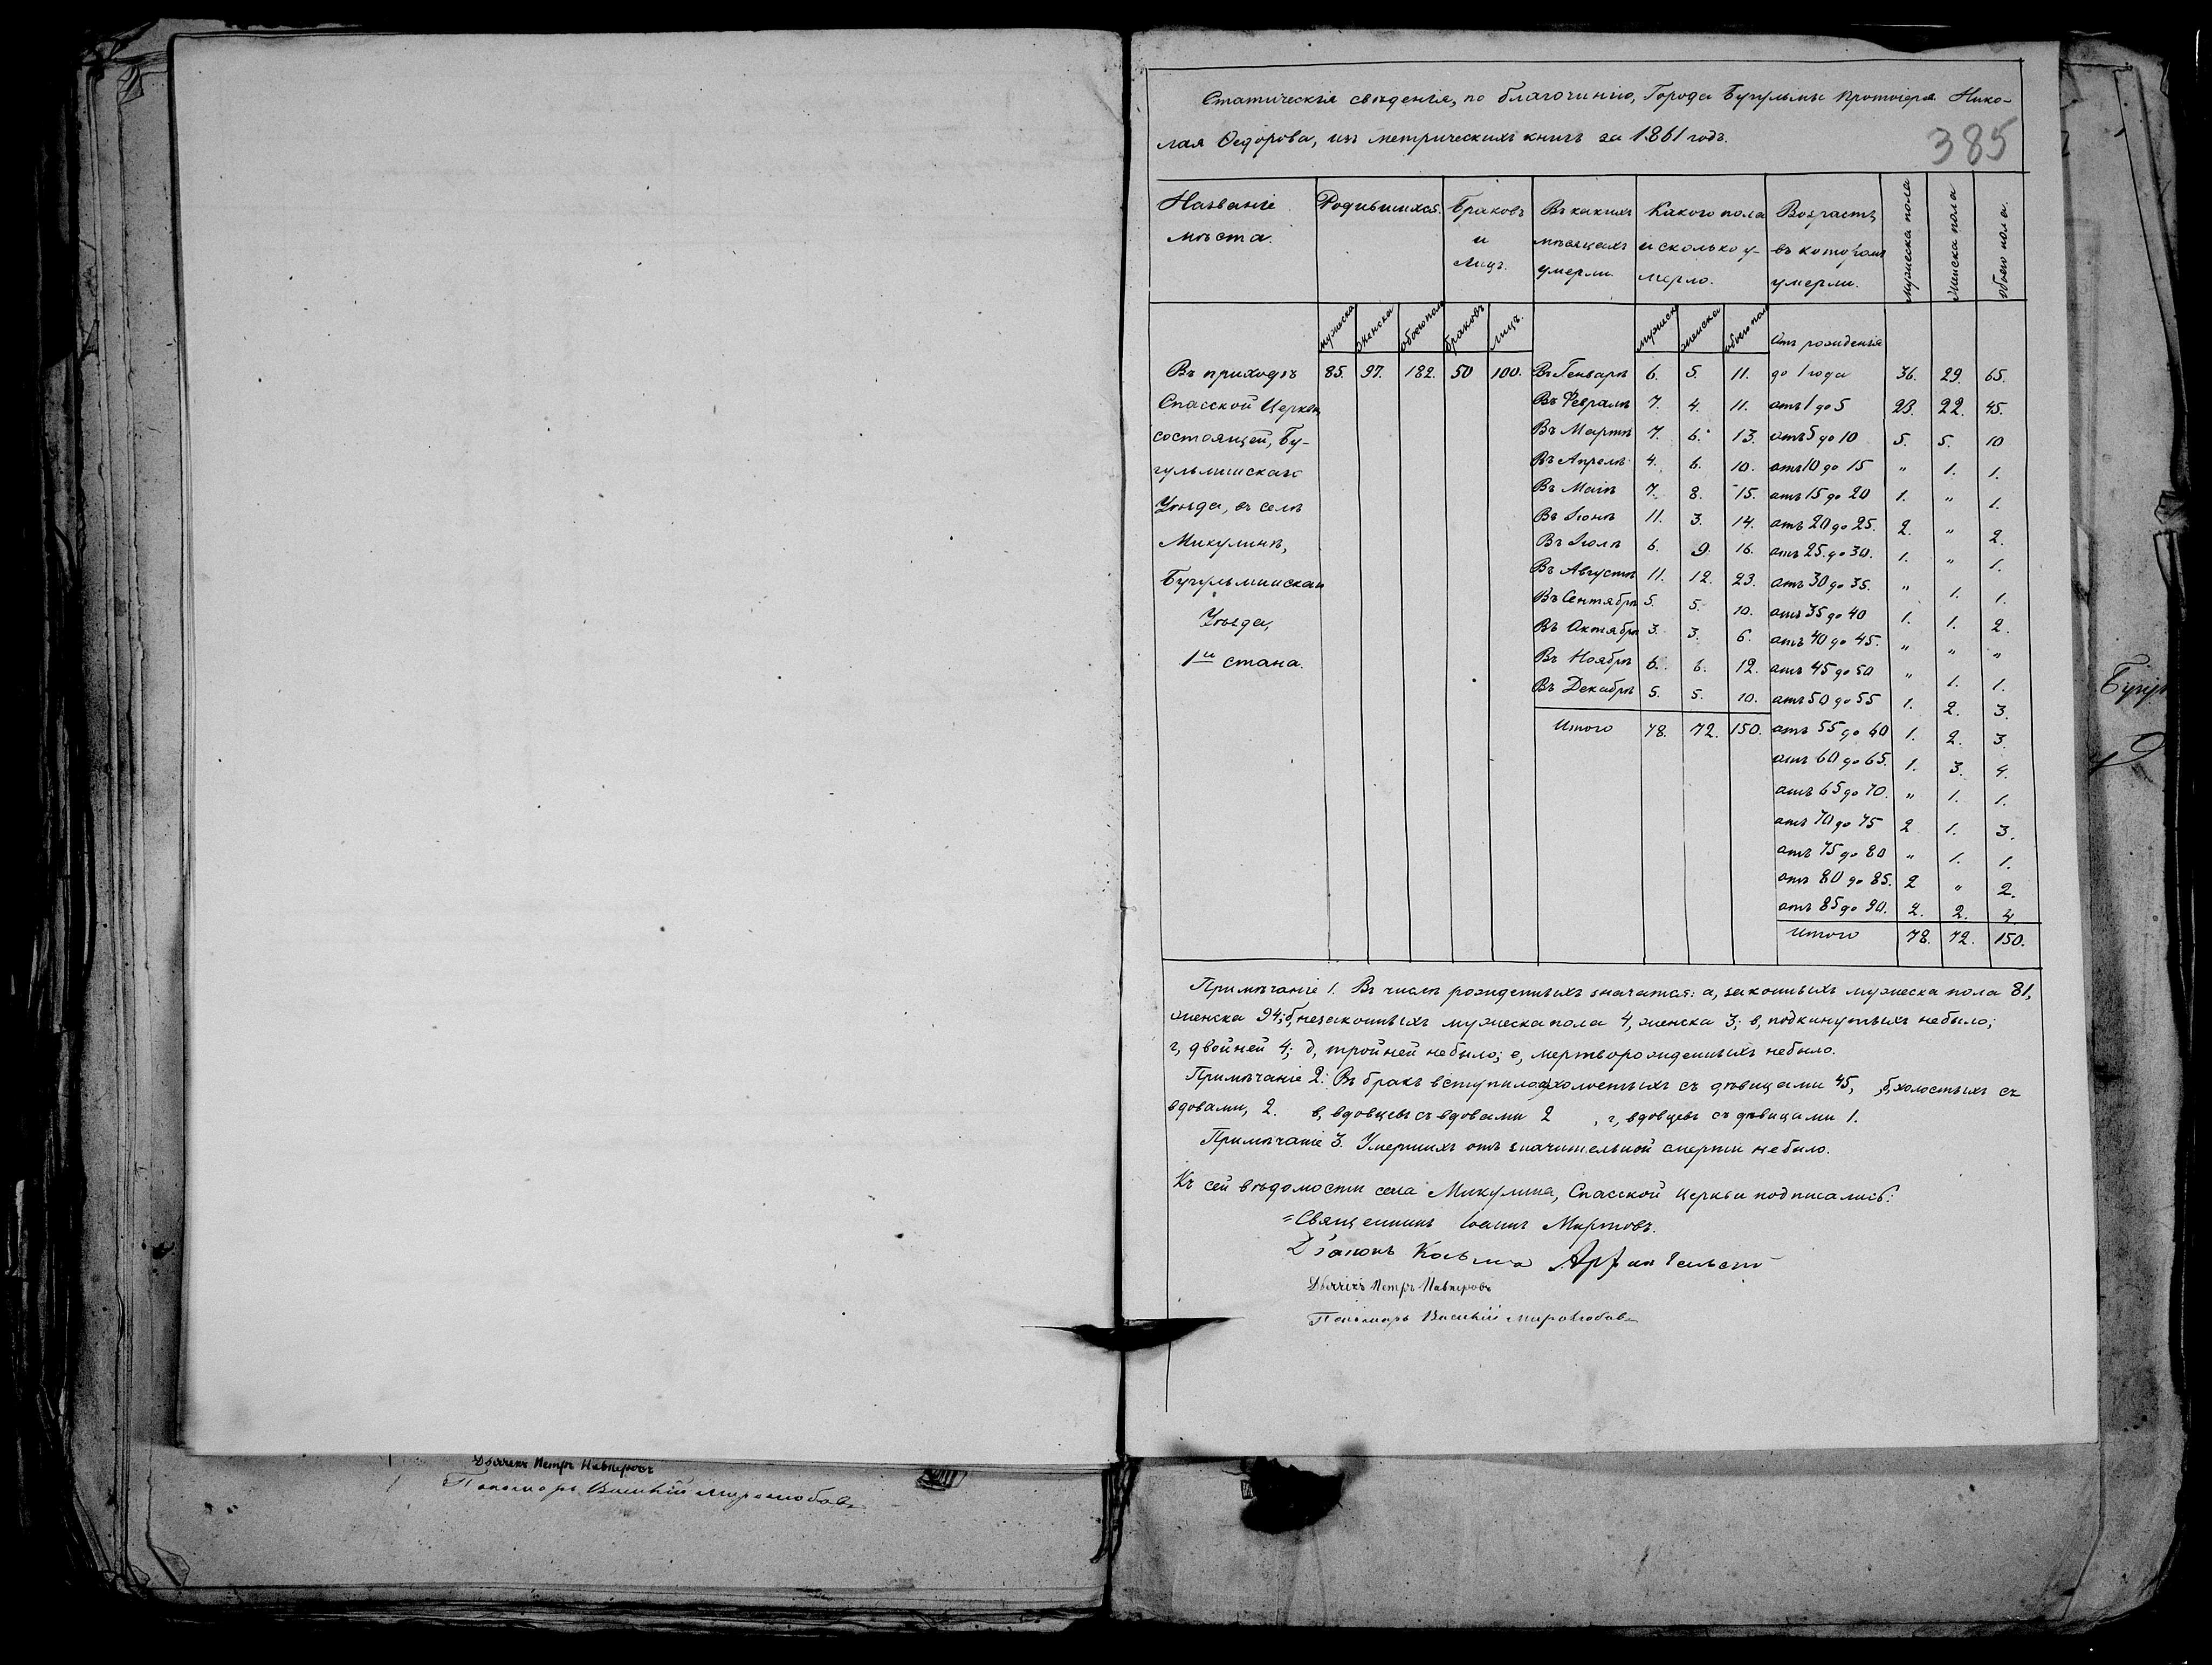 Статическія свѣденія, по благочинію, Города Бугульмы протоіерея Нико-
лая Ѳедорова, изъ метрическихъ книгъ за 1861 годъ.
385
Названіе мѣста. Родившихся. Браковъ и лицъ. Въ какихъ мѣсяцахъ умерли. Какого пола и сколько у-мерло. Возрастъ въ которомъ умерли. мужеска пола женска пола обоего пола.
мужеска женска обоего пола браковъ лицъ. мужеск женска обоего пол Отъ рожденія
Въ приходѣ 85. 97. 182. 50 100. Въ Генварѣ 6. 5. 11. до 1 года 36. 29. 65.
Спасской Церкви, Въ Февралѣ 7. 4. 11. отъ 1 до 5 23. 22. 45.
состоящей, Бу- Въ Мартѣ 7. 6. 13. отъ 5 до 10 5. 5. 10
гульминскаго Въ Апрелѣ 4. 6. 10. отъ 10 до 15 " 1. 1.
Уѣзда, въ селѣ Въ Маіѣ 7. 8. 15. отъ 15 до 20 1. " 1.
Микулинѣ, Въ Іюнѣ 11. 3. 14. отъ 20 до 25. 2. " 2.
Въ Іюлѣ 6. 9. 16. отъ 25. до 30. 1. " 1.
Бугульминскаго Въ Августѣ 11. 12. 23. отъ 30 до 35. " 1. 1.
Уѣзда, Въ Сентябрѣ 5. 5. 10. отъ 35 до 40 1. 1. 2.
Въ Октябрѣ 3. 3. 6. отъ 40 до 45. " " "
1й стана. Въ Ноябрѣ 6. 6. 12. отъ 45 до 50 " 1. 1.
Въ Декабрѣ 5. 5. 10. отъ 50 до 55 1. 2. 3.
Итого 78. 72. 150. отъ 55 до 60 1. 2. 3.
отъ 60 до 65. 1. 3. 4.
отъ 65 до 70. " 1. 1.
отъ 70 до 75 2 1. 3.
отъ 75 до 80 " 1. 1.
отъ 80 до 85. 2 " 2.
отъ 85 до 90. 2. 2. 4
Итого 78. 72. 150.
Примѣчаніе 1. Въ числѣ рожденныхъ значатся: а, законныхъ мужеска пола 81,
женска 94; б, незаконныхъ мужеска пола 4, женска 3; в, подкинутыхъ небыло;
г, двойней 4; д, тройней небыло; е, мертворожденныхъ небыло.
Примѣчаніе 2. Въ бракъ вступило: а, холостыхъ съ дѣвицами 45, б, холостыхъ съ
вдовами, 2. в, вдовцевъ съ вдовами 2, г, вдовцевъ съ дѣвицами 1.
Примѣчаніе 3. Умершихъ отъ значительной смерти небыло.
Къ сей вѣдомости села Микулина, Спасской церкви подписались:
Священникъ Іоаннъ Миртовъ.
Діаконъ Косьма Архангельскій
Дьячекъ Петръ
Пономарь Василій Миролюбовъ
Дьячекъ Петръ
Пономарь Василій Миролюбовъ
Бугул